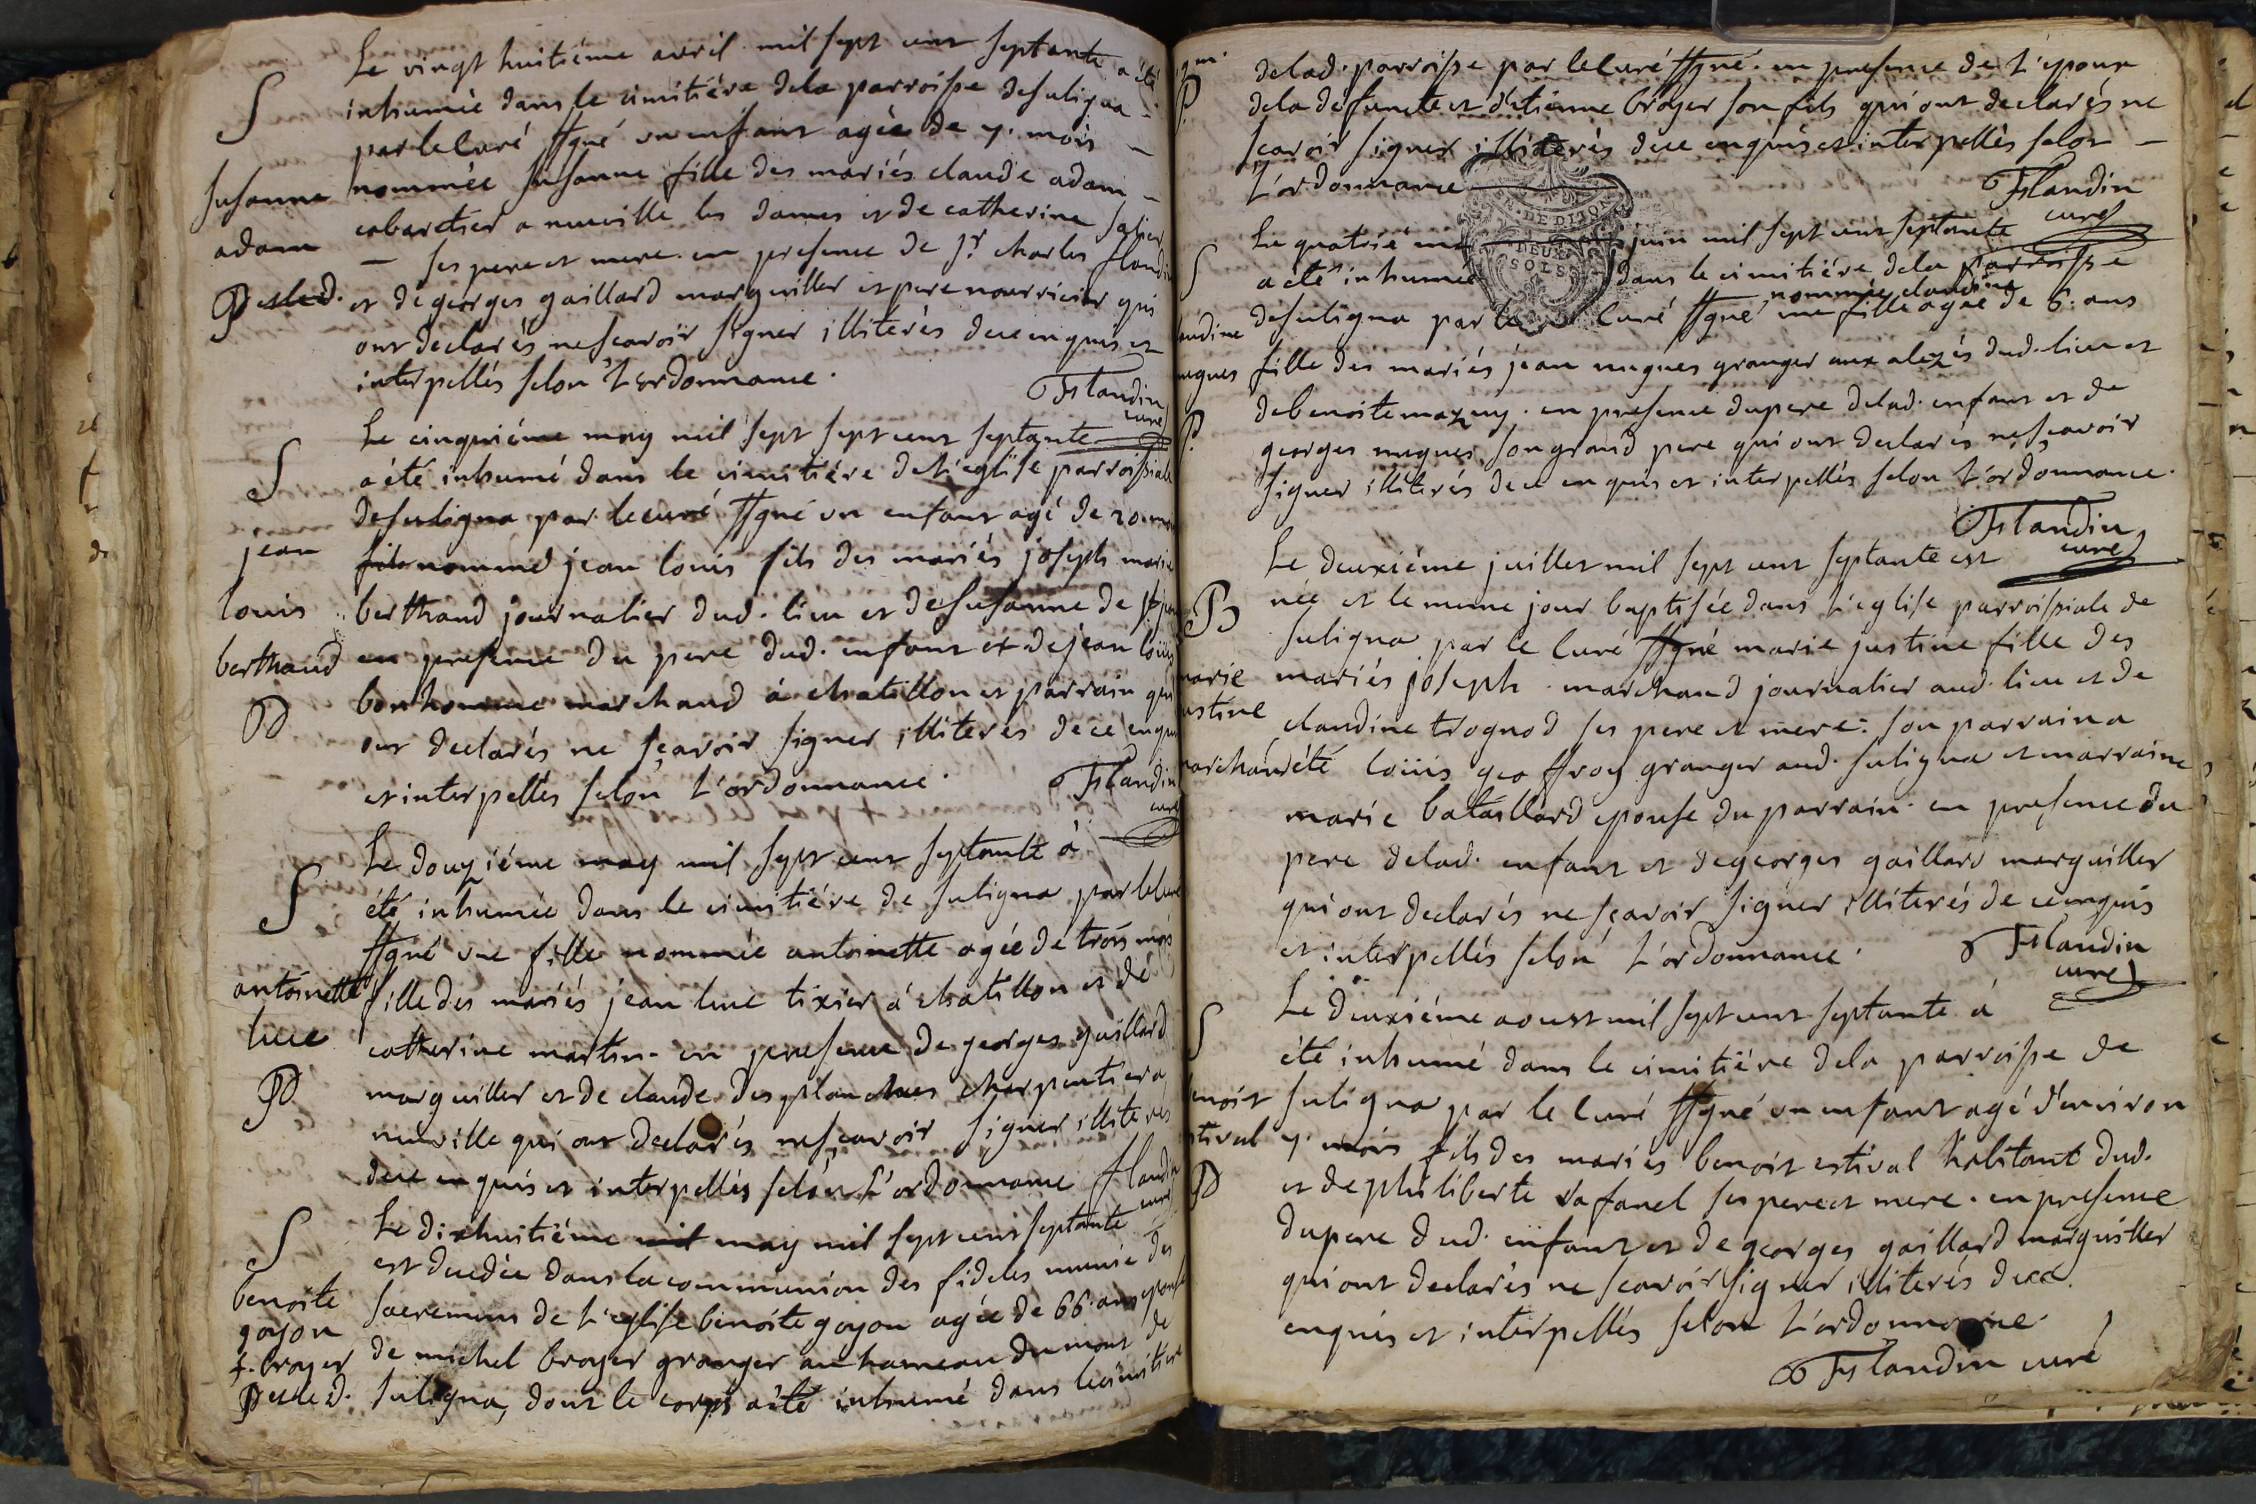 Le vingt huitiéme avril mil sept cent septante a été
S
inhumée dans le cimitiére dela parroisse desuligna -
par le Curé ssgné un enfant agée de 7. mois -
Susanne
adam
nommée susanne fille des mariés claude adam -
cabaretier a neuville les dames et de catherine
- ses pere et mere. en presence de sr. charles flandin
et de georges gaillard marguiller et pere nourricier qui
ont declarés ne scavoir signer illiterés dece enquis et
interpellés selon l'ordonnance.
Flandin
curé
S
jean
louis
berthaud
Pd
Le cinquiéme may mil sept sept cent septante
a été inhumé dans le cimitiére del'eglise parroissiale
desuligna par lecuré ssgné un enfant agé de 20. mois
fils nommé jean louis fils des mariés joseph marie
berthaud journalier dud. lieu et de susanne de
en presence du pere dud. enfant et de jean loüis
bonhomme marchand á chatillon et parrain qui
ont declarés ne sçavoir signer illiterés de ce enquis
et interpellés selon l'ordonnance.
Flandin
curé
S
antoinette
luce
Pd
Le douziéme may mil sept cent septante á
été inhumée dans le cimitiére de suligna par lecuré
ssgné une fille nommée antoinette agée de trois mois
fille des mariés jean luce tixier á chatillon et de
catherine martin. en presence de georges gaillard
marguiller et de claude desplanches charpentier a
neuville qui ont declarés ne sçavoir signer illiterés
dece enquis et interpellés selon l'ordonnance flandin
curé
S
benoite
goyon
f. broyer
Le dixhuitiéme mil may mil sept cent septante
est decedée dans la communion des fideles munie des
sacremens de l'eglise benoite goyon agée de 66. ans epouse
de michel broyer granger au hameau du mont de
suligna, dont le corps a été inhumé dans le cimitiere
delad. parroisse par lecuré ssgné. en presence de l'epoux
dela defuncte et d'etienne broyer son fils qui ont declarés ne
scavoir signer illiterés dece enquis et interpellés selon -
l'ordonnance
Flandin
curé
DE DIJON
DEUX
SOLS
S
Le quatrié me juin mil sept cent septante
a été inhumée dans le cimitiére dela parroisse
nommée claudine
desuligna par le curé ssgné une fille agée de 6. ans
fille des mariés jean nugues granger aux alezés dud. lieu et
debenoite mazuy. en presence dupere delad. enfant et de
georges nugues son grand pere qui ont declarés ne sçavoir
signer illiterés dece enquis et interpellés selon l'ordonnance.
Flandin
curé
B
marie
justine
marchand
Le deuxiéme juillet mil sept cent septante est
née et le meme jour baptisée dans l'eglise parroissiale de
suligna par le curé ssgné marie justine fille des
mariés joseph marchand journalier aud. lieu et de
claudine trognod ses pere et mere. son parrain a
été loüis geoffroy granger aud. suligna et marraine
marie bataillard epouse du parrain. en presence du
pere delad. enfant et de georges gaillard marguiller
qui ont declarés ne sçavoir signer illiterés de ce enquis
et interpellés selon l'ordonnance.
Flandin
curé
S
benoit
estival
Pd
Le deuxiéme aoust mil sept cent septante á
été inhumé dans le cimitiére dela parroisse de
suligna par le curé ssgné un enfant agé d'environ
7. mois fils des mariés benoit estival habitant dud.
et de philiberte rafanel ses pere et mere. en presence
dupere dud. enfant et de georges gaillard marguiller
qui ont declarés ne scavoir signer illiterés dece
enquis et interpellés selon l'ordonnance.
Flandin curé